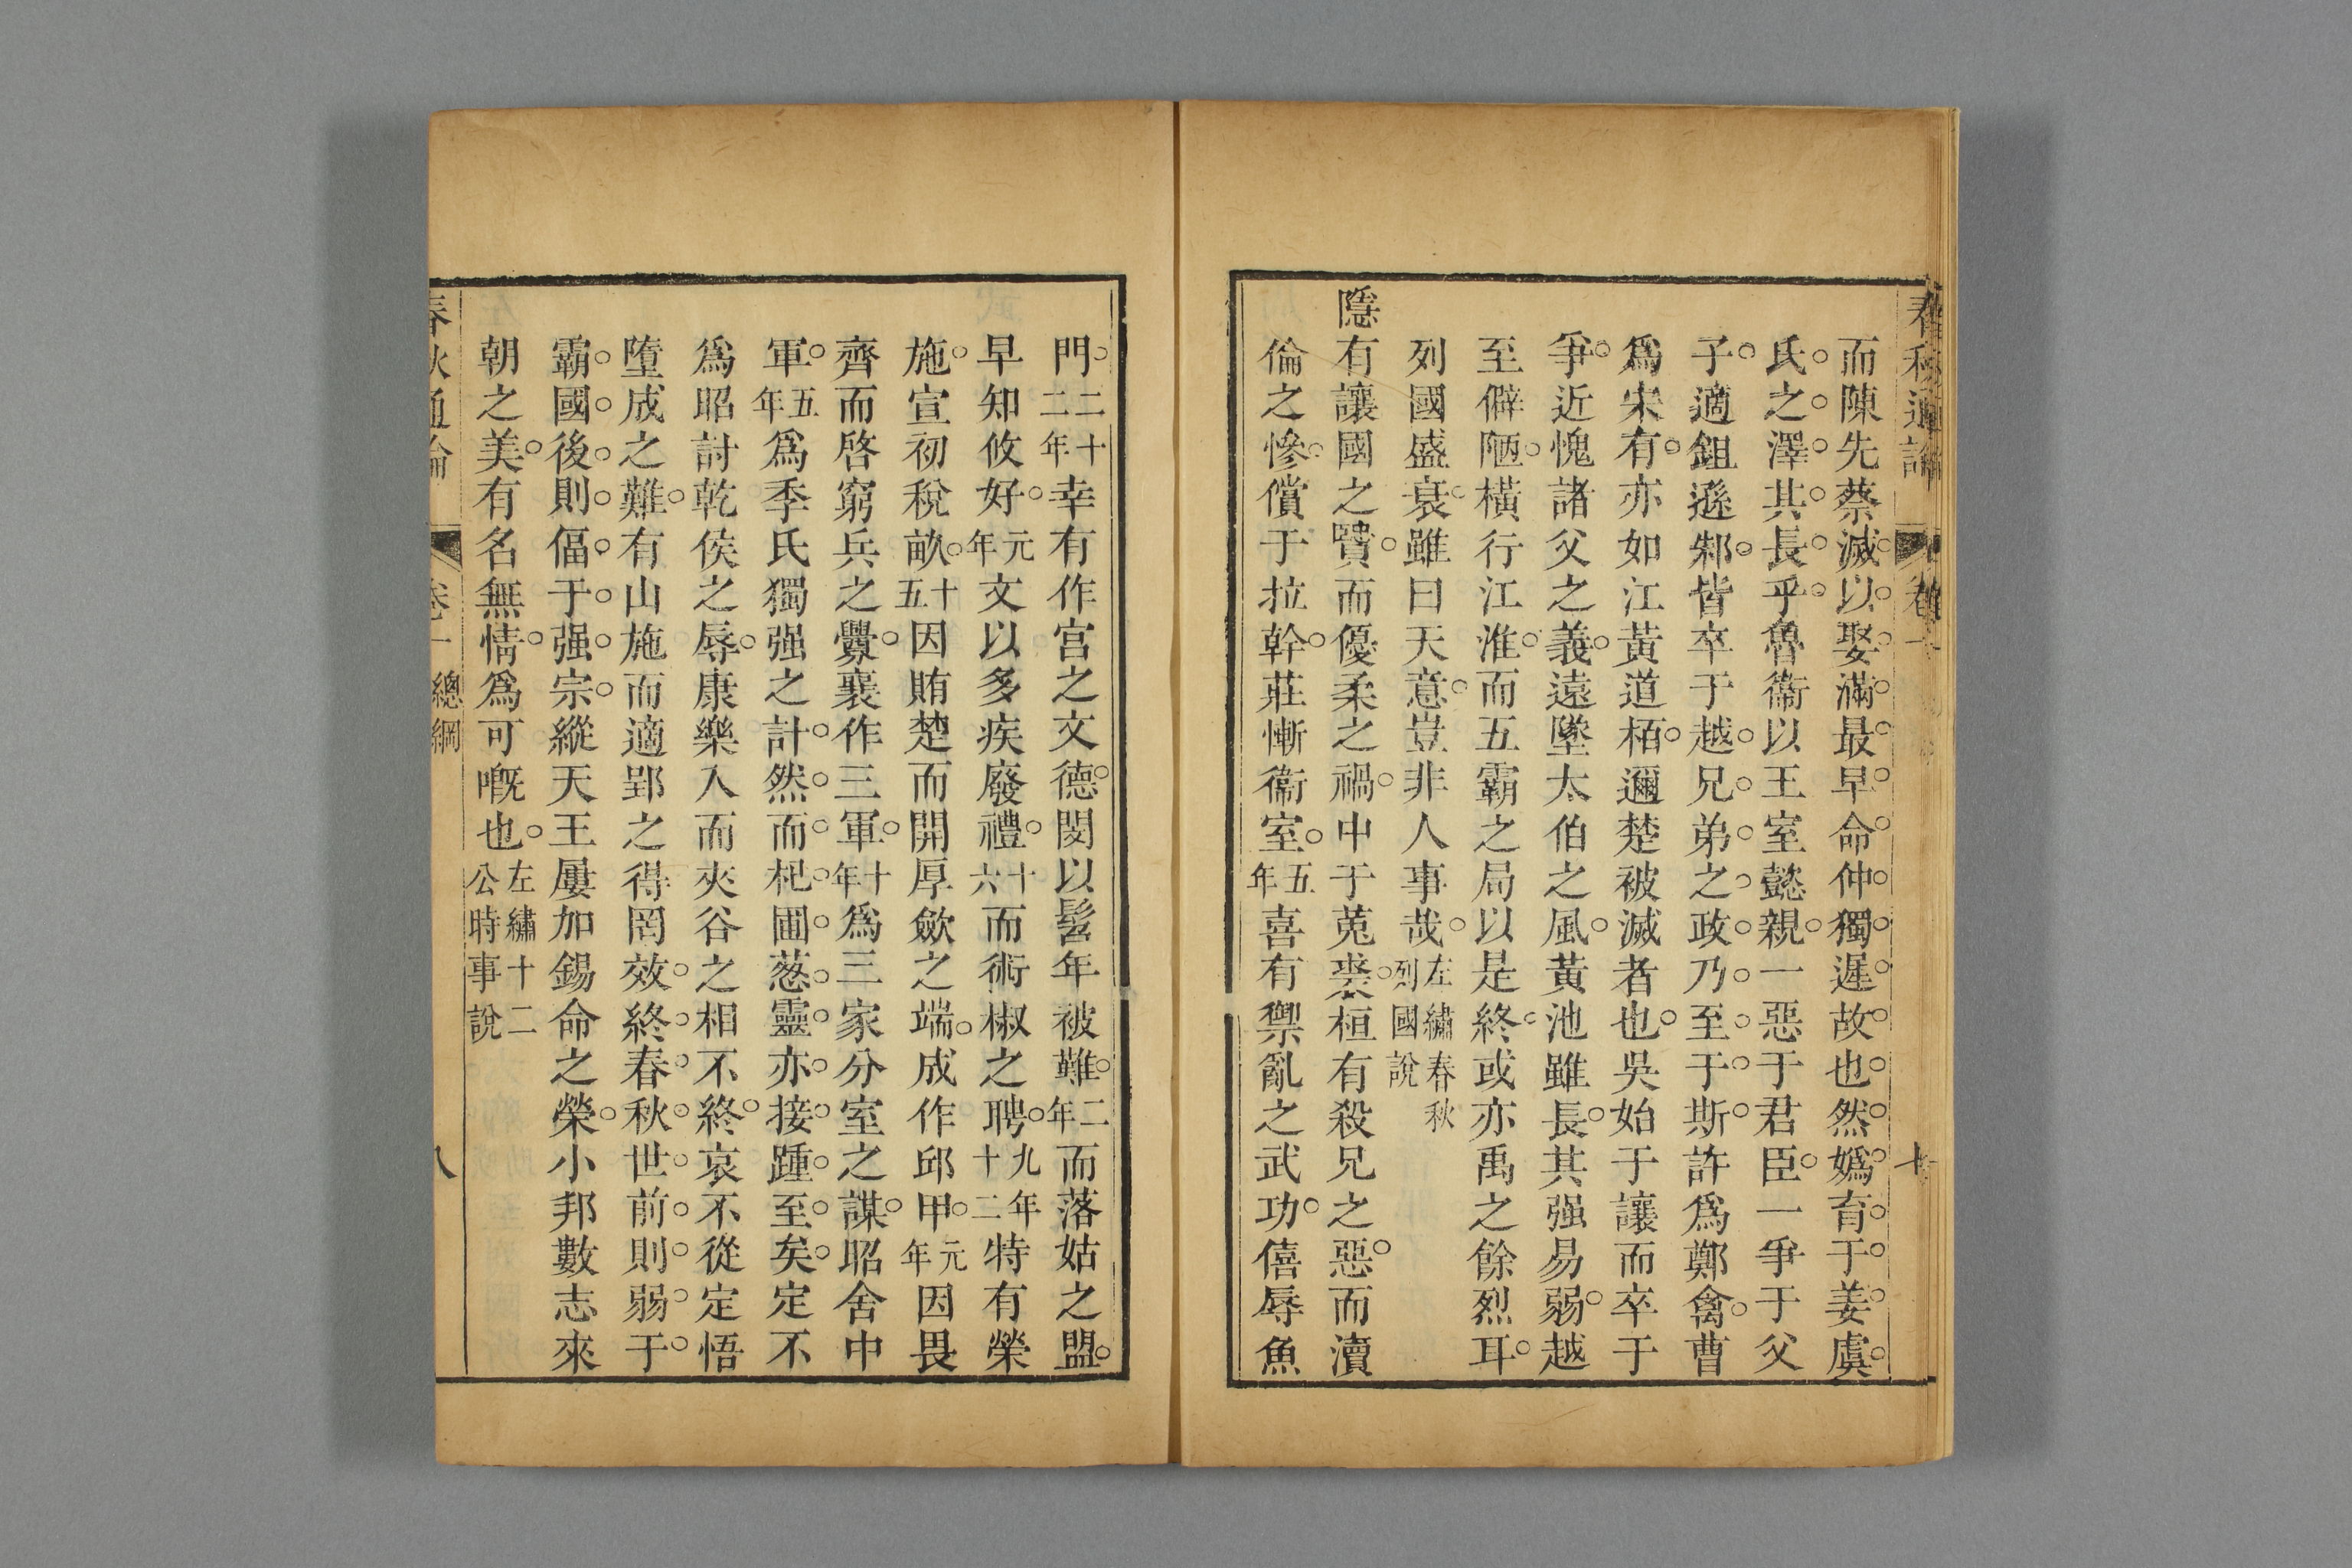 春秋通論 卷一 七
而陳先蔡滅以娶滿最早命仲獨遲故也然嬀育于姜虞
氏之澤其長乎魯衞以王室懿親一惡于君臣一爭于父
子適鉏遜邾皆卒于越兄弟之政乃至于斯許爲鄭禽曹
爲宋有亦如江黃道栢邇楚被滅者也吳始于讓而卒于
爭近愧諸父之義遠墜太伯之風黃池雖長其强易弱越
至僻陋橫行江淮而五霸之局以是終或亦禹之餘烈耳
列國盛衰雖曰天意豈非人事哉左繡春秋列國說
隱有讓國之賢而優柔之禍中于菟裘桓有殺兄之惡而瀆
倫之慘償于拉幹莊慚衞室五年喜有禦亂之武功僖辱魚
門二十二年幸有作宮之文德閔以髫年被難二年而落姑之盟
早知攸好元年文以多疾廢禮十六而術椒之聘九年十二特有榮
施宣初稅畝十五因賄楚而開厚斂之端成作邱甲元年因畏
齊而啓窮兵之釁襄作三軍十年爲三家分室之謀昭舍中
軍五年爲季氏獨强之計然而杞圃葱靈亦接踵至矣定不
爲昭討乾侯之辱康樂入而夾谷之相不終哀不從定悟
墮成之難有山施而適郢之得罔效終春秋世前則弱于
霸國後則偪于强宗縱天王屢加錫命之榮小邦數志來
朝之美有名無情爲可嘅也左繡十二公時事說
春秋通論 卷一 總綱 八